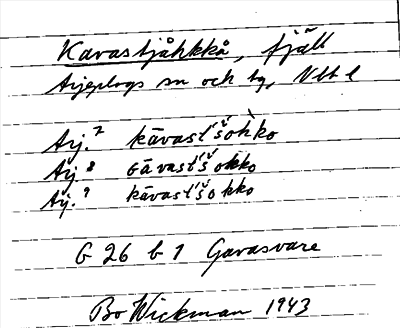 Kavastjåhkkå, fjäll
Arjeplogs sn och tg, Vbt l
Arj.² kāvast'šohko
Arj.⁸ Gāvast'šokko
Arj.⁹ kāvast'šokko
G 26 b 1 Gavasvare
Bo Wickman 1943